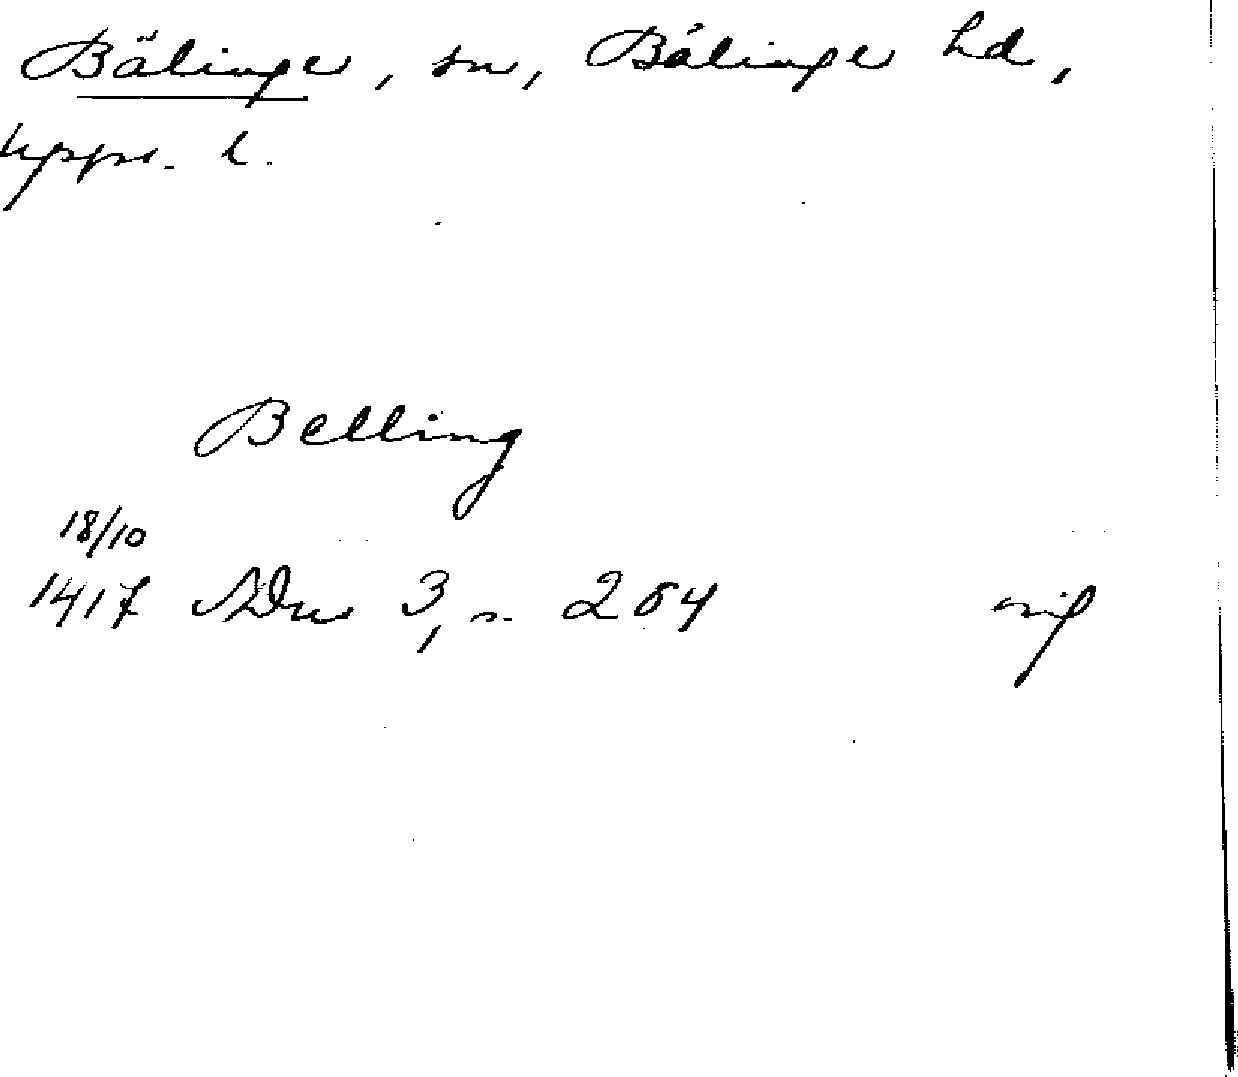 Bälinge, sn, Bälinge hd,
Upps. l.
Belling
18/10
1417 SDns 3, s. 264 orig